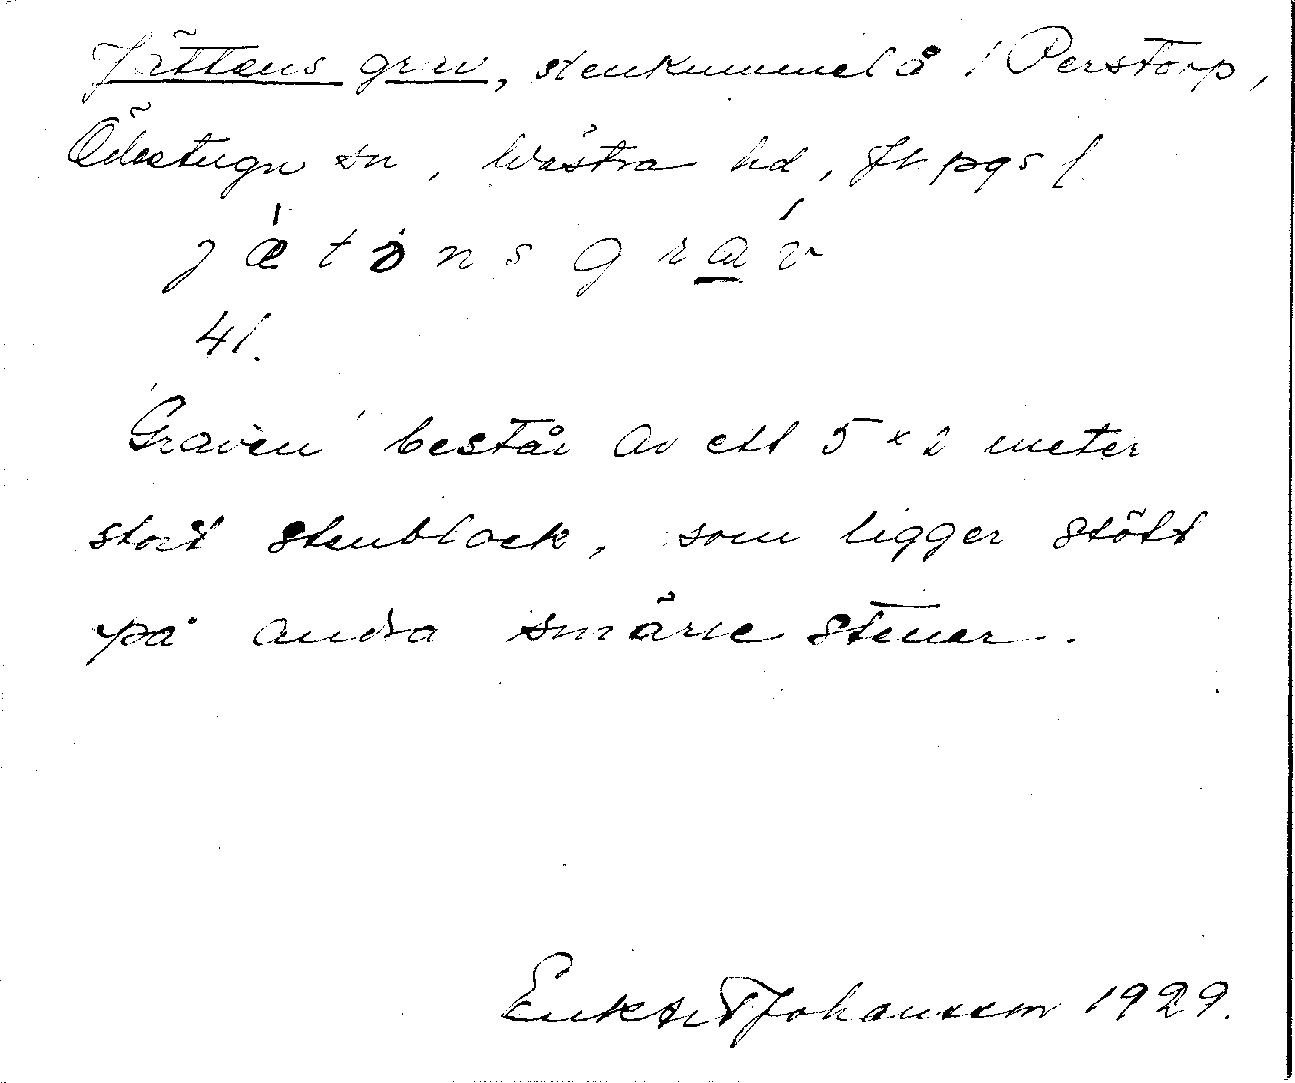 Jättens grav, stenkummel å 1 Perstorp,
Ödestugu sn, Västra hd, Jkpgs l.
jætönsgrav
41.
"Graven" består av ett 5 x 2 meter
stort stenblock, som ligger stött
på andra smärre stenar.
Johansson 1929.